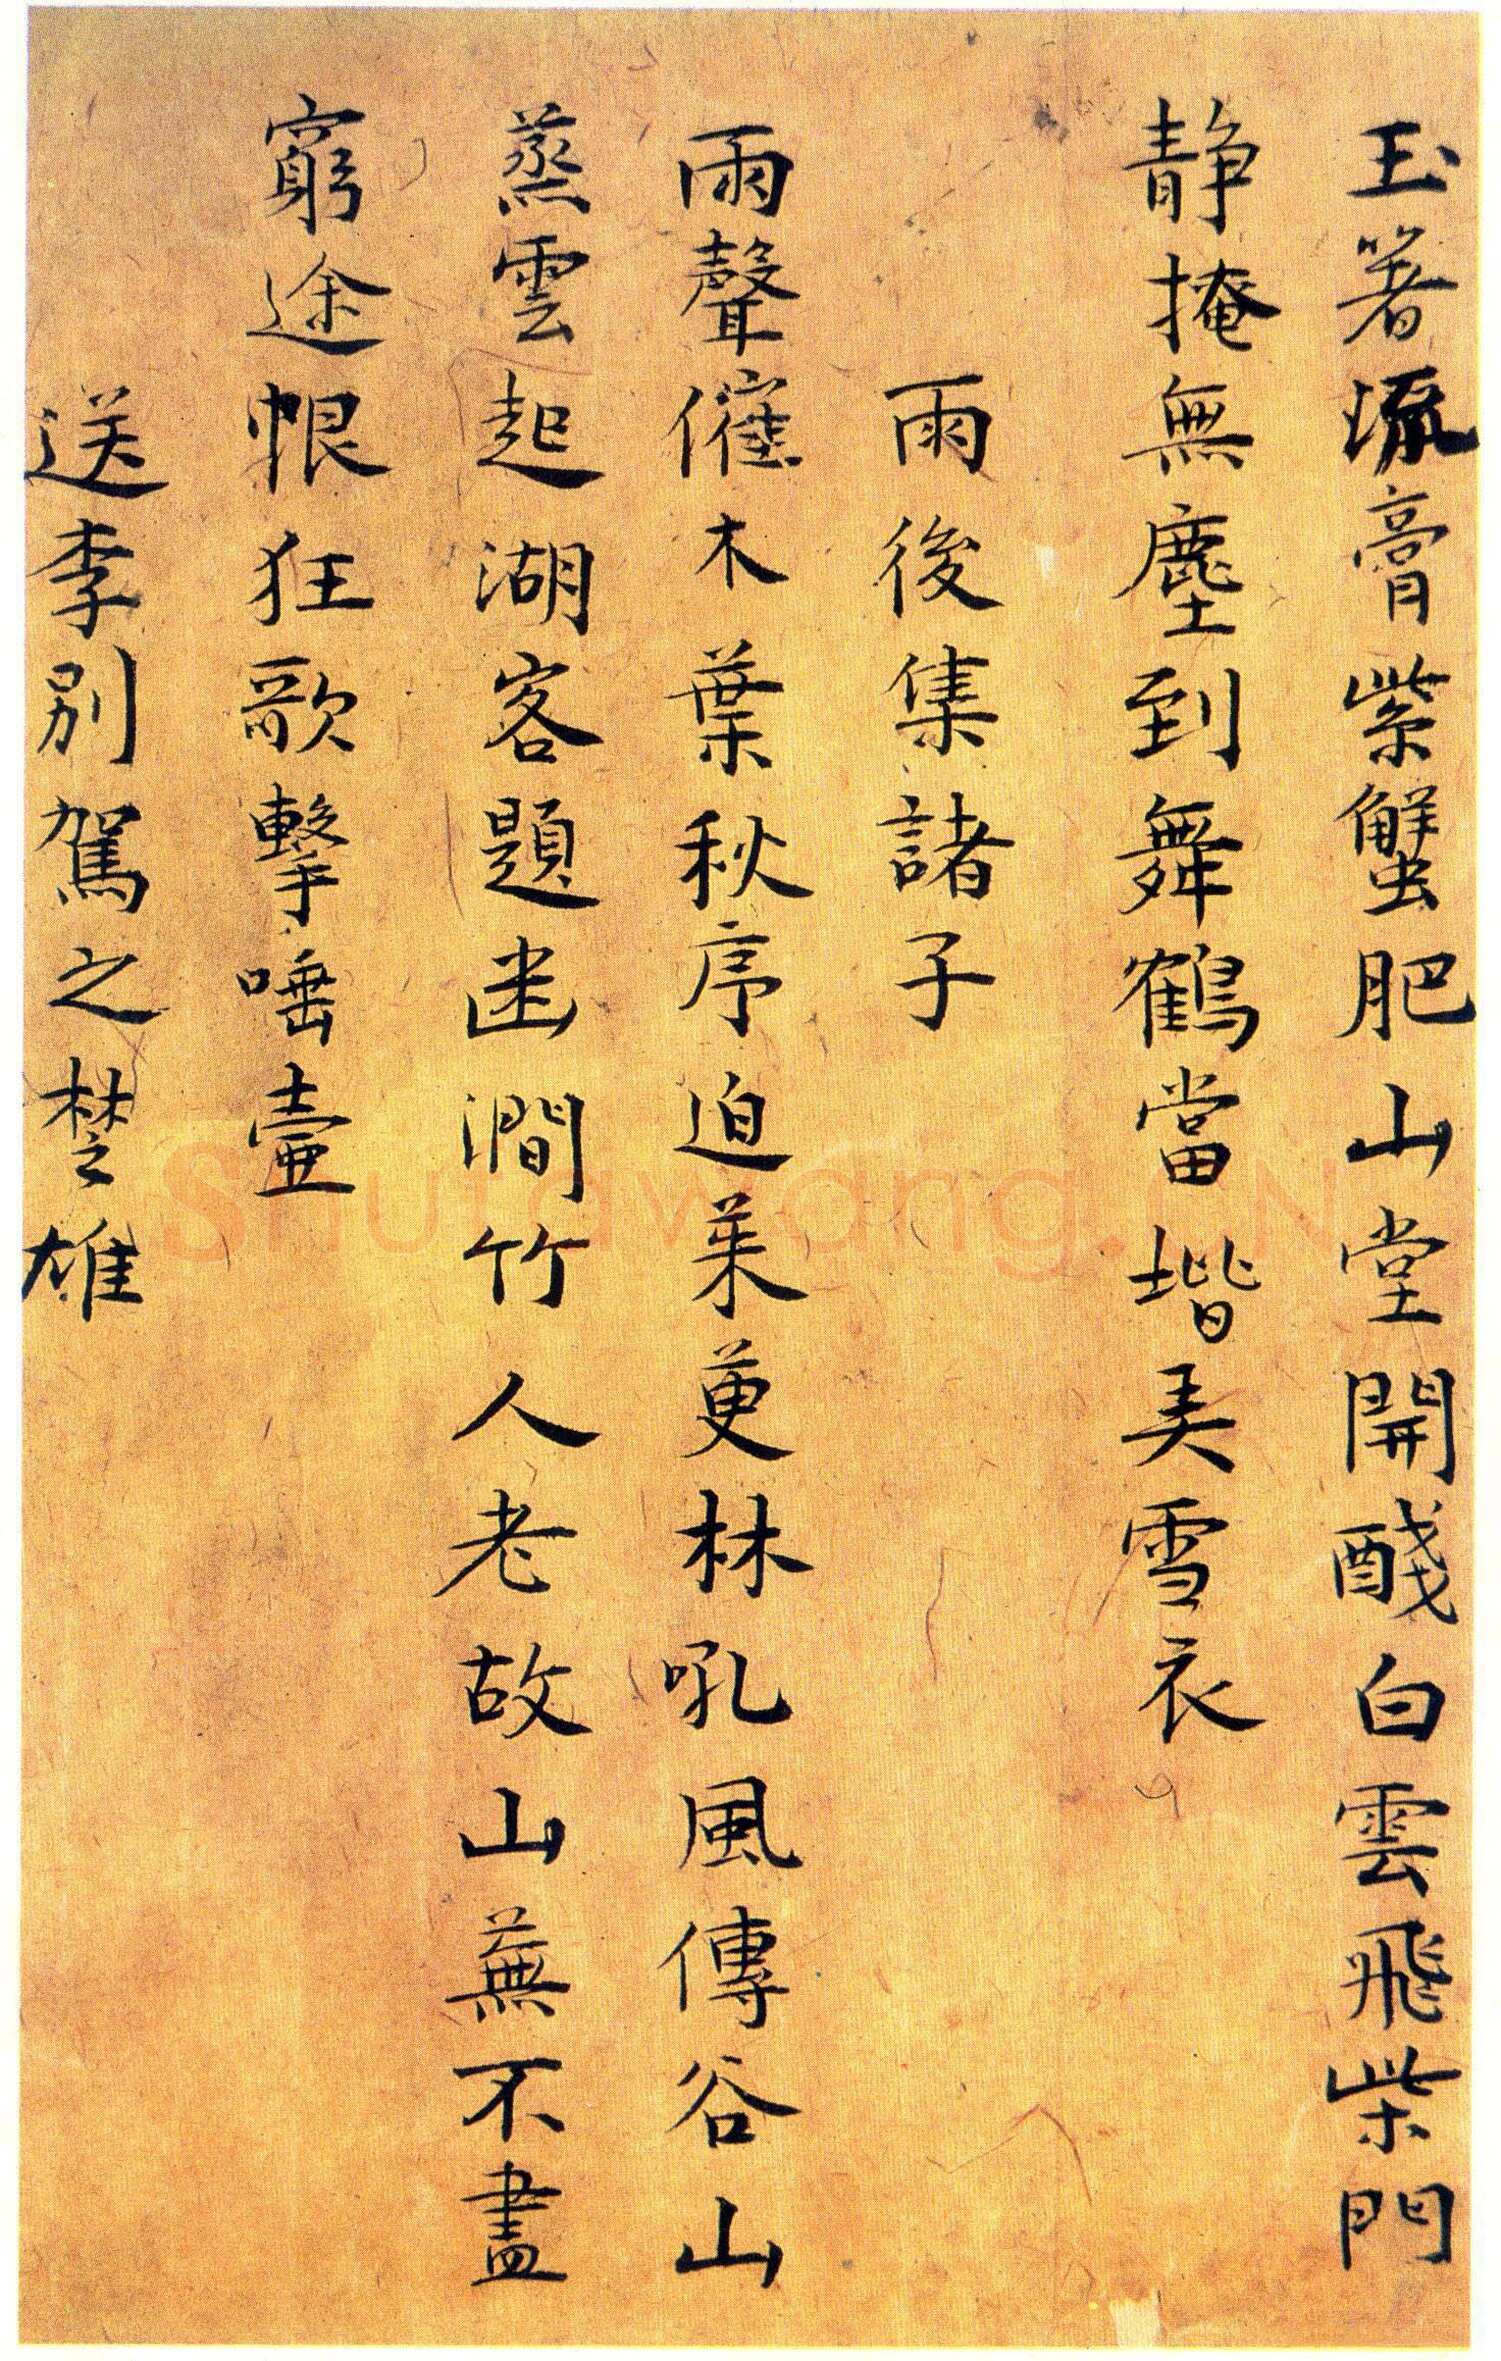 玉箸流膏紫蟹肥山堂開醆白雲飛柴門
静掩無塵到舞鶴當堦美雪衣
雨後集諸子
雨聲催木葉秋序迫茱萸林吼風傳谷山
蒸雲起湖客題幽澗竹人老故山蕪不盡
窮途恨狂歌擊唾壺
送李別駕之楚雄
Shufawang.CN